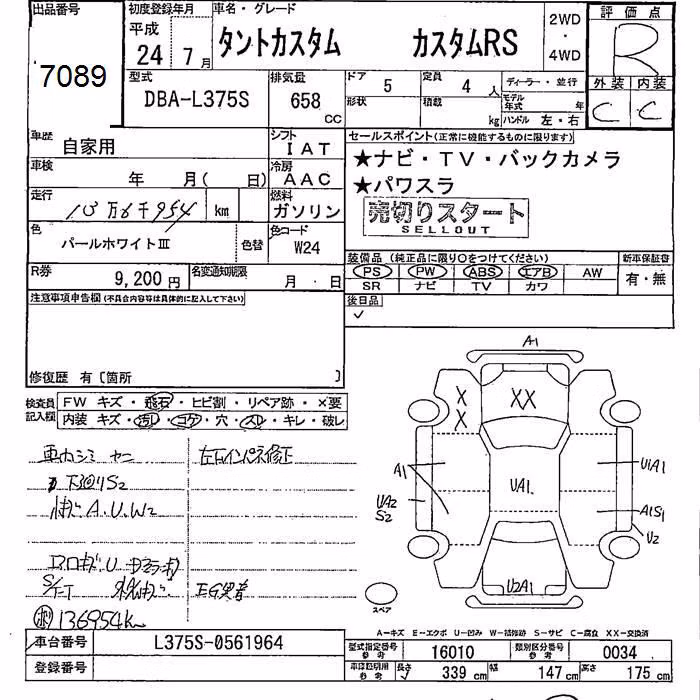 出品番号
7089
初度登録年月
平成
24 7月
車名・グレード
タントカスタム カスタムRS
2WD
・
4WD
評価点
R
外装 内装
C C
型式
DBA-L375S
排気量
658
CC
ドア
5
定員
4 人
形状
積載
kg
ディーラー・並行
モデル年式
年
ハンドル 左・右
車歴
自家用
シフト
IAT
車検
年 月( 日)
冷房
AAC
走行
13万6千954 km
燃料
ガソリン
色
パールホワイトⅢ
色替
色コード
W24
R券
9,200円
名変通知期限
月 . 日
セールスポイント(正常に機能するものに限ります)
★ナビ・TV・バックカメラ
★パワスラ
売切りスタート
SELLOUT
装備品 (純正品に限り〇をつけてください)
新車保証書
PS PW ABS エアB AW
SR ナビ TV カワ
有・無
後日品
注意事項申告欄(不具合内容等は具体的に記入して下さい)
修復歴 有〔箇所 〕
検査員
記入欄
FW キズ・飛石・ヒビ割・リペア跡・×要
内装 キズ・汚レ・コゲ・穴・スレ・キレ・破レ
左右インパネ修正
下廻りS2
A.U.W2
136954km
A1
X
X
XX
A1
UA2
S2
UA1
U1A1
A1S1
U2
U2A1
スペア
A-キズ E-エクボ U-凹み W-補修跡 S-サビ C-腐食 XX-交換済
車台番号
L375S-0561964
登録番号
型式指定番号
参考
16010
類別区分番号
参考
0034
車庫証明用
参考
長さ
339 cm
幅
147 cm
高さ
175 cm